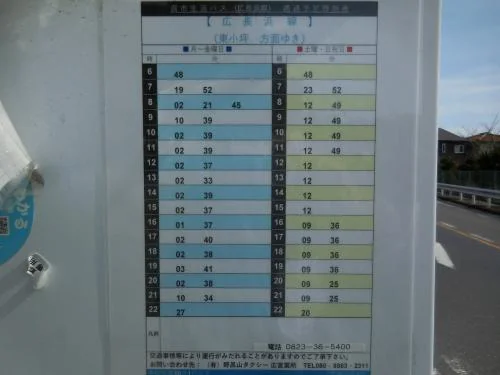 呉市生活バス (広長浜線) 通過予定時刻表
【 広長浜線 】
(東小坪 方面ゆき)
■月～金曜日■ ■土曜・日祝日■
時 分 時 分
6 48 6 48
7 19 52 7 23 52
8 02 21 45 8 12 49
9 10 39 9 12 49
10 02 39 10 12 49
11 02 39 11 12 49
12 02 37 12 12
13 02 33 13 12
14 02 39 14 12
15 02 37 15 12
16 01 37 16 09 36
17 02 40 17 09 36
18 02 38 18 09 36
19 03 41 19 09 36
20 02 38 20 09 25
21 10 34 21 09 25
22 27 22 20
凡例
電話 0823-36-5400
交通事情等により運行がみだれることがありますのでご了承下さい。
お問い合わせ先： (有) 野呂山タクシー 広営業所 TEL080-8983-2311
わかる